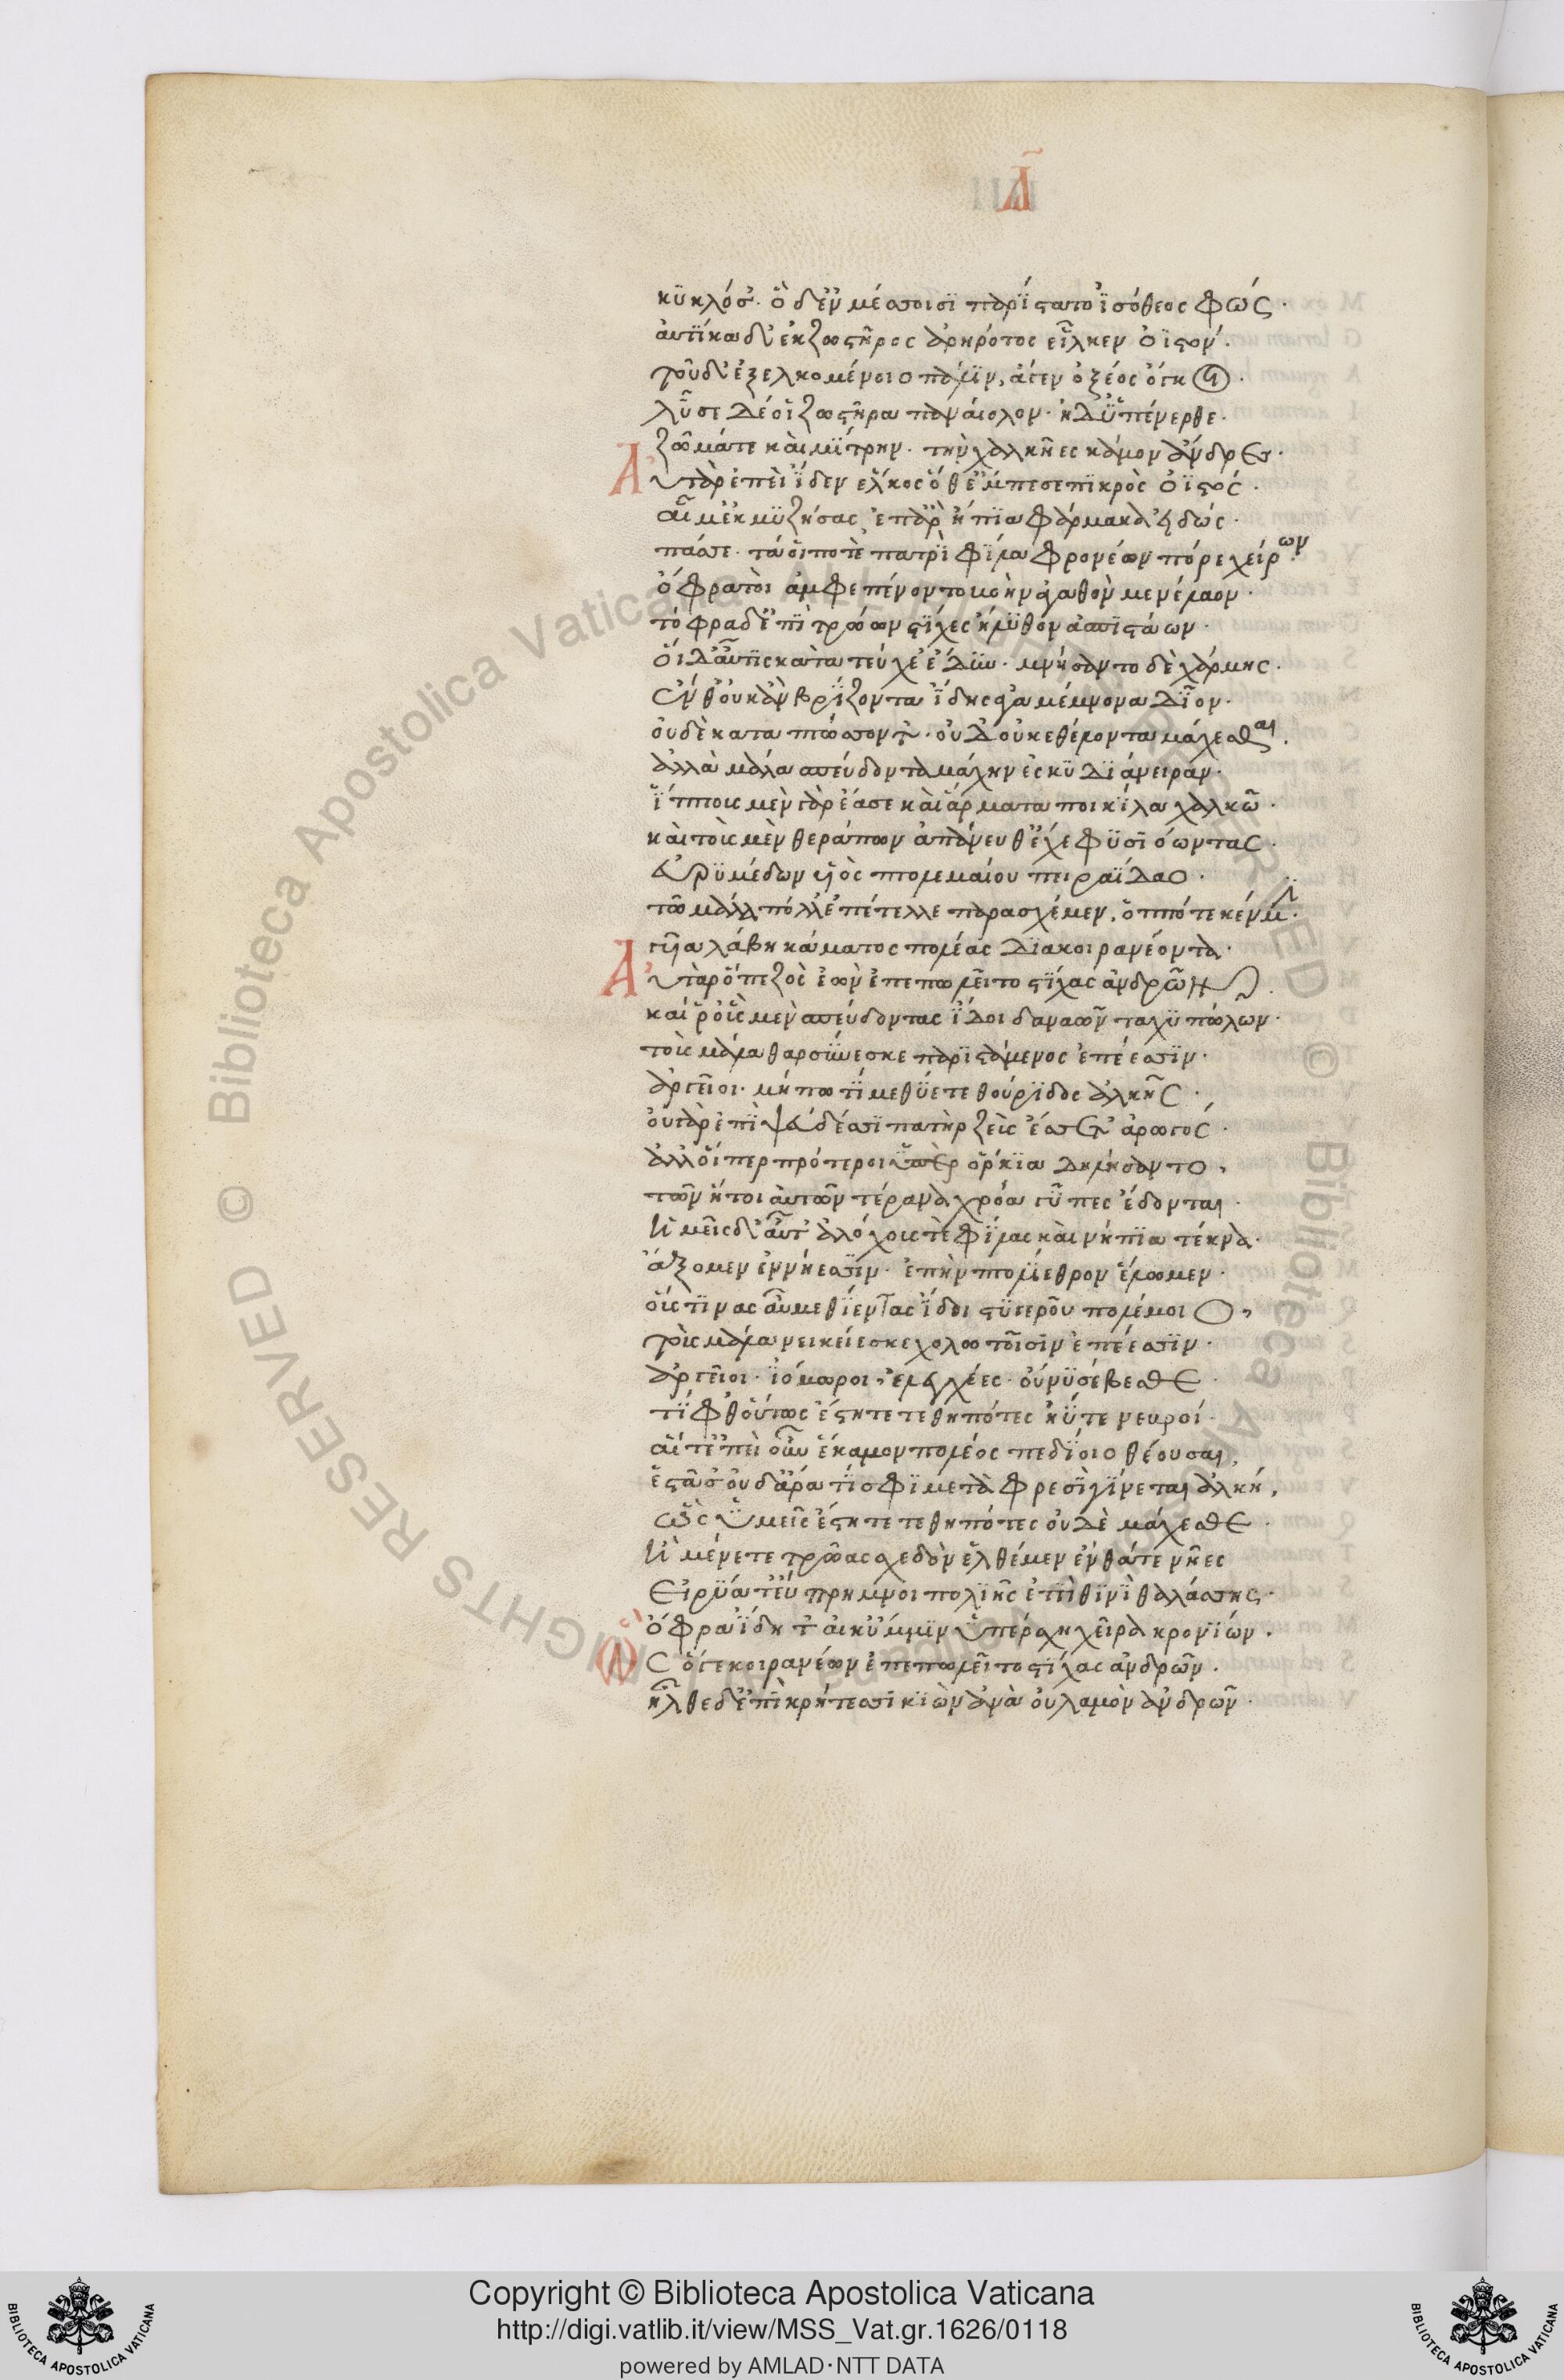 Δ
κυκλόσ'. ὁ δ' ἐν μέσσοισι παρίστατο ἰσόθεος φώς.
αὐτίκα δ' ἐκ ζωστῆρος ἀρηρότος εἷλκεν ὀϊστόν.
τοῦ δ' ἐξελκομένοιο πάλιν, ἄγεν ὀξέος ὄγκοι.
λῦσε δέ οἱ ζωστῆρα παναίολον. ἠδ' ὑπένερθε.
ζῶμά τε καὶ μίτρην. τὴν χαλκῆες κάμον ἄνδρες.
Αὐτὰρ ἐπεὶ ἴδεν ἕλκος ὅθ' ἔμπεσε πικρὸς ὀϊστός.
αἷμ' ἐκμυζήσας, ἐπ' ἄρ' ἤπια φάρμακα εἰδώς.
πάσσε. τά οἵ ποτε πατρὶ φίλα φρονέων πόρε χείρων.
ὄφρα τοὶ ἀμφεπένοντο βοὴν ἀγαθὸν μενέλαον.
τόφρα δ' ἐπὶ τρώων στίχες ἤλυθον ἀσπιστάων.
οἱ δ' αὖτις κατὰ τεύχε' ἔδυν. μνήσαντο δὲ χάρμης.
Ἔνθ' οὐκ ἂν βρίζοντα ἴδης ἀγαμέμνονα δῖον.
οὐδὲ καταπτώσσοντ'. οὐδ' οὐκ ἐθέλοντα μάχεσθαι.
ἀλλὰ μάλα σπεύδοντα μάχην ἐς κυδιάνειραν.
ἵππους μὲν γὰρ ἔασε καὶ ἅρματα ποικίλα χαλκῶ.
καὶ τοὺς μὲν θεράπων ἀπάνευθ' ἔχε φυσιόωντας.
Εὐρυμέδων υἱὸς πτολεμαίου πειραΐδαο.
τῶ μάλα πόλλ' ἐπέτελλε παρασχέμεν, ὁππότε κέν μιν.
γυῖα λάβη κάματος πολέας διακοιρανέοντα.
Αὐτὰρ ὁ πεζὸς ἐὼν ἐπεπωλεῖτο στίχας ἀνδρῶν.
καί ῥ' οὓς μὲν σπεύδοντας ἴδοι δαναῶν ταχυπώλων.
τοὺς μάλα θαρσύνεσκε παριστάμενος ἐπέεσσιν.
ἀργεῖοι. μήπω τι μεθύετε θούριδος ἀλκῆς.
οὐ γὰρ ἐπὶ ψευδέσσι πατὴρ ζεὺς ἔσσετ' ἀρωγός.
ἀλλ' οἵπερ πρότεροι ὑπὲρ ὅρκια δηλήσαντο,
τῶν ἤτοι αὐτῶν τέρενα χρόα γῦπες ἔδονται.
ἡμεῖς δ' αὖτ' ἀλόχους τε φίλας καὶ νήπια τέκνα.
ἄξομεν ἐν νήεσσιν. ἐπὴν πτολίεθρον ἕλωμεν.
οὕς τινας αὖ μεθιέντας ἴδοι στυγεροῦ πολέμοιο,
τοὺς μάλα νεικείεσκε χολωτοῖσιν ἐπέεσσιν.
ἀργεῖοι. ἰόμωροι, ἐλεγχέες. οὔ νυ σέβεσθε.
τίφθ' οὕτως ἔστητε τεθηπότες ἠΰτε νευροί.
αἵτ' ἐπεὶ οὖν ἔκαμον πολέος πεδίοιο θέουσαι,
ἑστᾶσ' οὐδ' ἄρα τί σφι μετὰ φρεσὶ γίνεται ἀλκή,
ὣς ὑμεῖς ἔστητε τεθηπότες οὐδὲ μάχεσθε.
ἢ μένετε τρῶας σχεδὸν ἐλθέμεν ἔνθά τε νῆες
Εἰρύατ' εὔπρημνοι πολιῆς ἐπὶ θινὶ θαλάσσης.
ὄφρα ἴδητ' αἴ κ' ὔμμιν ὑπέρσχη χεῖρα κρονίων.
Ὣς ὅγε κοιρανέων ἐπεπωλεῖτο στίχας ἀνδρῶν.
ἦλθε δ' ἐπὶ κρήτεσσι κιὼν ἀνὰ οὐλαμὸν ἀνδρῶν.
© Biblioteca Apostolica Vaticana ALL RIGHTS RESERVED © Biblioteca Apostolica Vaticana ALL RIGHTS RESERVED
Copyright © Biblioteca Apostolica Vaticana
http://digi.vatlib.it/view/MSS_Vat.gr.1626/0118
powered by AMLAD·NTT DATA
BIBLIOTECA APOSTOLICA VATICANA
BIBLIOTECA APOSTOLICA VATICANA